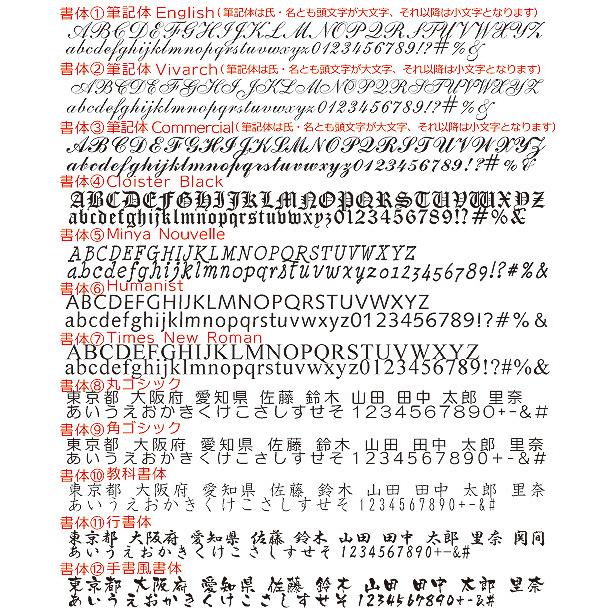 書体①筆記体 English(筆記体は氏・名とも頭文字が大文字、それ以降は小文字となります)
ABCDEFGHIJKLMNOPQRSTUVWXYZ
abcdefghijklmnopqrstuvwxyz0123456789!?#%&
書体②筆記体 Vivarch(筆記体は氏・名とも頭文字が大文字、それ以降は小文字となります)
ABCDEFGHIJKLMNOPQRSTUVWXYZ
abcdefghijklmnopqrstuvwxyz0123456789!?#%&
書体③筆記体 Commercial(筆記体は氏・名とも頭文字が大文字、それ以降は小文字となります)
ABCDEFGHIJKLMNOPQRSTUVWXYZ
abcdefghijklmnopqrstuvwxyz0123456789!?#%&
書体④Cloister Black
ABCDEFGHIJKLMNOPQRSTUVWXYZ
abcdefghijklmnopqrstuvwxyz0123456789!?#%&
書体⑤Minya Nouvelle
ABCDEFGHIJKLMNOPQRSTUVWXYZ
abcdefghijklmnopqrstuvwxyz0123456789!?#%&
書体⑥Humanist
ABCDEFGHIJKLMNOPQRSTUVWXYZ
abcdefghijklmnopqrstuvwxyz0123456789!?#%&
書体⑦Times New Roman
ABCDEFGHIJKLMNOPQRSTUVWXYZ
abcdefghijklmnopqrstuvwxyz0123456789!?#%&
書体⑧丸ゴシック
東京都 大阪府 愛知県 佐藤 鈴木 山田 田中 太郎 里奈
あいうえおかきくけこさしすせそ 1234567890+-&#
書体⑨角ゴシック
東京都 大阪府 愛知県 佐藤 鈴木 山田 田中 太郎 里奈
あいうえおかきくけこさしすせそ 1234567890+-&#
書体⑩教科書体
東京都 大阪府 愛知県 佐藤 鈴木 山田 田中 太郎 里奈
あいうえおかきくけこさしすせそ 1234567890+-&#
書体⑪行書体
東京都 大阪府 愛知県 佐藤 鈴木 山田 田中 太郎 里奈 関間
あいうえおかきくけこさしすせそ 1234567890+-&#
書体⑫手書風書体
東京都 大阪府 愛知県 佐藤 鈴木 山田 田中 太郎 里奈
あいうえおかきくけこさしすせそ 1234567890+-&#